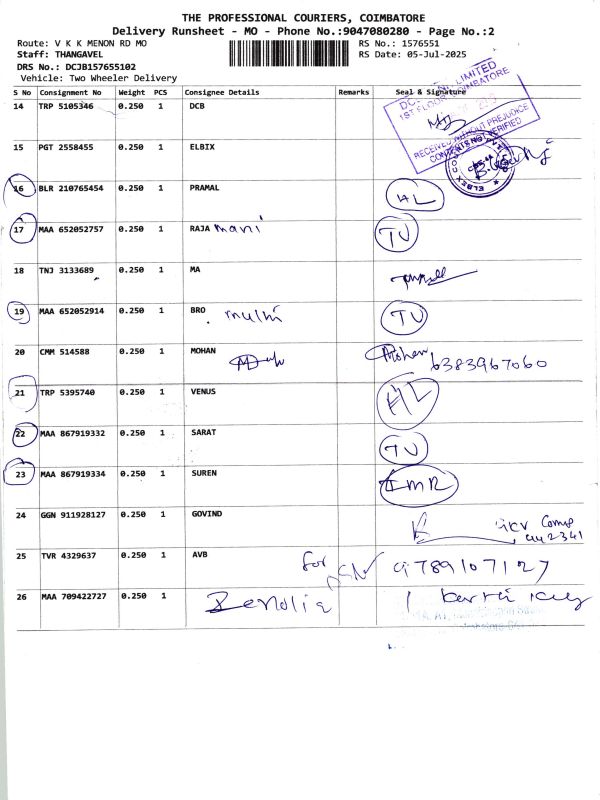 THE PROFESSIONAL COURIERS, COIMBATORE
Delivery Runsheet - MO - Phone No.:9047080280 - Page No.:2
Route: V K K MENON RD MO RS No.: 1576551
Staff: THANGAVEL RS Date: 05-Jul-2025
DRS No.: DCJB157655102
Vehicle: Two Wheeler Delivery
S No Consignment No Weight PCS Consignee Details Remarks Seal & Signature
LIMITED
1ST FLOOR COIMBATORE
RECEIVED WITHOUT PREJUDICE
CONTENTS NOT VERIFIED
14 TRP 5105346 0.250 1 DCB
15 PGT 2558455 0.250 1 ELBIX
16 BLR 210765454 0.250 1 PRAMAL HL
17 MAA 652052757 0.250 1 RAJA mani TU
18 TNJ 3133689 0.250 1 MA
19 MAA 652052914 0.250 1 BRO TU
20 CMM 514588 0.250 1 MOHAN Mohan 6383967060
21 TRP 5395740 0.250 1 VENUS HL
22 MAA 867919332 0.250 1 SARAT TU
23 MAA 867919334 0.250 1 SUREN
24 GGN 911928127 0.250 1 GOVIND
25 TVR 4329637 0.250 1 AVB for 9789107127
26 MAA 709422727 0.250 1 Zenolia